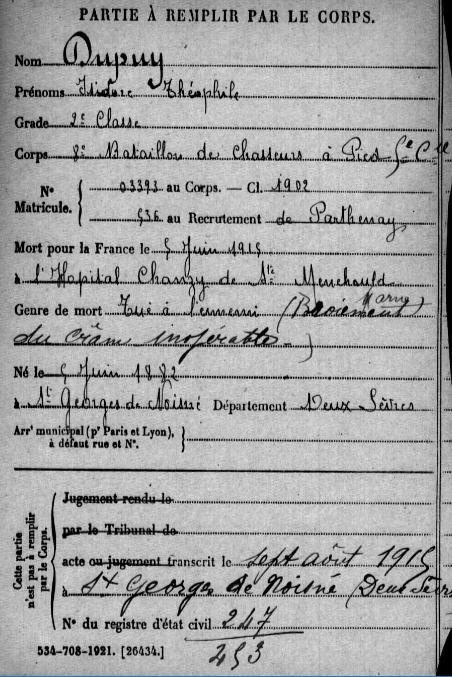 PARTIE À REMPLIR PAR LE CORPS.
Nom Dupuy
Prénoms Isidore Théophile
Grade 2e Classe
Corps 8e Bataillon de Chasseurs à Pied 5e Cie
Nos Matricule. { 03393 au Corps. — Cl. 1902
536 au Recrutement de Parthenay
Mort pour la France le 5 Juin 1915
à l'Hopital Chanzy de Ste Menehould
Marne
Genre de mort Tué à l'ennemi (Broiement
du crâne inopérable)
Né le 5 Juin 1882
à St Georges de Noisné Département Deux Sèvres
Arrt municipal (pr Paris et Lyon), à défaut rue et No. }
Cette partie n'est pas à remplir par le Corps.
Jugement rendu le
par le Tribunal de
acte ou jugement transcrit le sept août 1915
à St Georges de Noisné (Deux Sèvr
No du registre d'état civil 247
253
534-708-1921. [26434.]